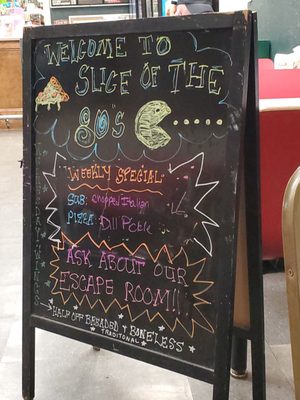 WELCOME TO
SLICE OF THE
80's
WEEKLY SPECIAL
SUB: Chopped Italian
PIZZA: Dill Pickle
ASK ABOUT OUR
ESCAPE ROOM!!
HALF OFF BREADED & BONELESS
TRADITONAL
WINGS